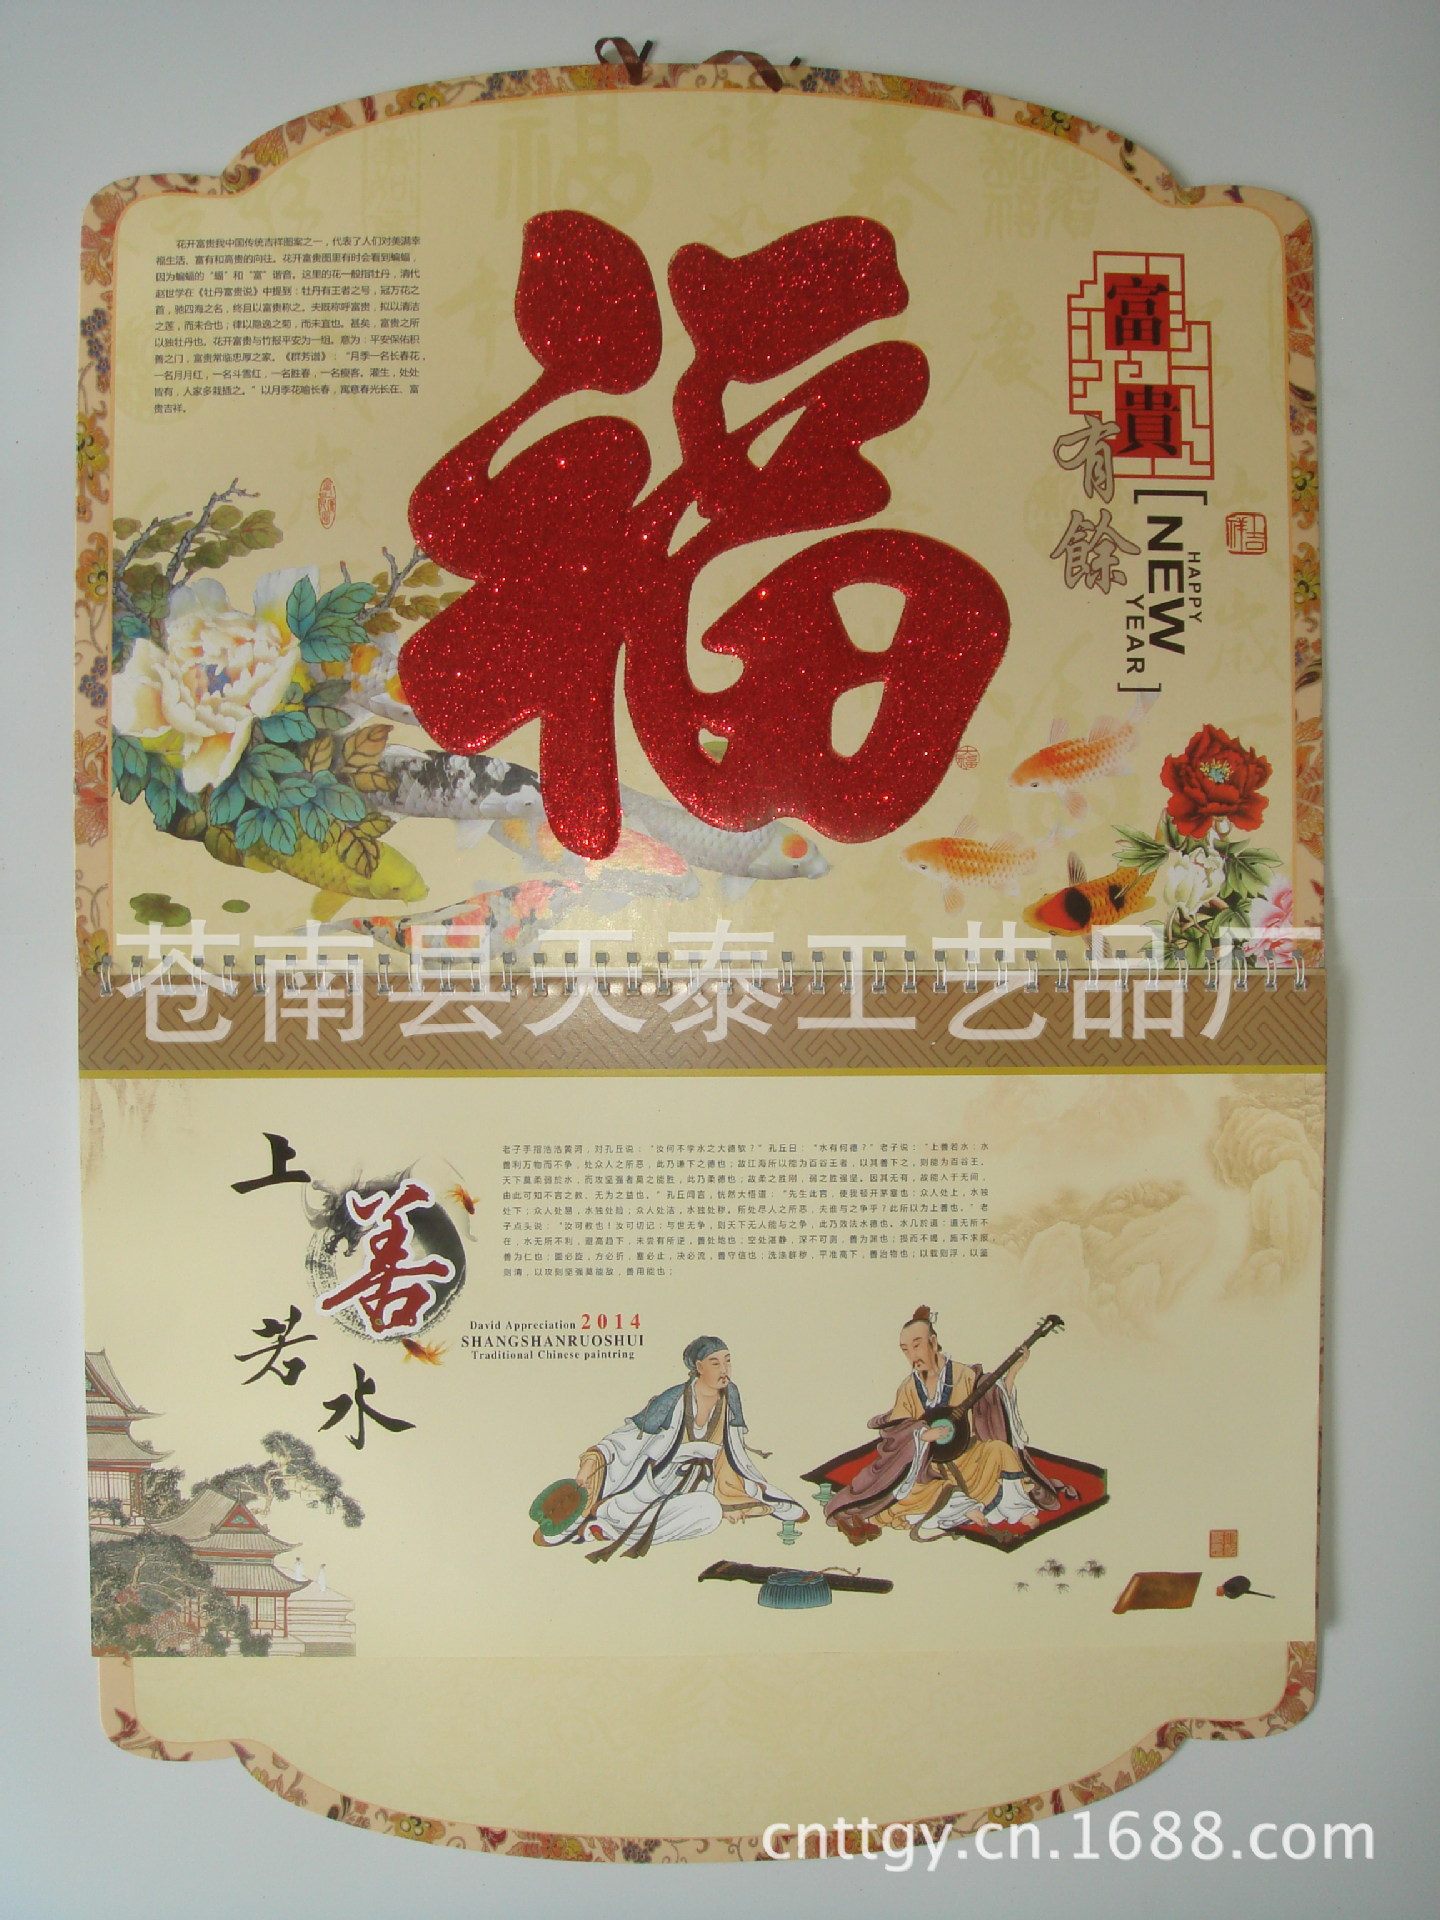 花开富贵我中国传统吉祥图案之一，代表了人们对美满幸
福生活、富有和高贵的向往。花开富贵图里有时会看到蝙蝠，
因为蝙蝠的“蝠”和“富”谐音。这里的花一般指牡丹，清代
赵世学在《牡丹富贵说》中提到：牡丹有王者之号，冠万花之
首，驰四海之名，终且以富贵称之。夫既称呼富贵，拟以清洁
之莲，而未合也；律以隐逸之菊，而未宜也。甚矣，富贵之所
以独牡丹也。花开富贵与竹报平安为一组。意为：平安保佑积
善之门，富贵常临忠厚之家。《群芳谱》：“月季一名长春花，
一名月月红，一名斗雪红，一名胜春，一名瘦客。灌生，处处
皆有，人家多栽插之。”以月季花喻长春，寓意春光长在、富
贵吉祥。
福
富贵
有餘
[HAPPY
NEW
YEAR]
吉祥
苍南县天泰工艺品厂
上
善
若
水
老子手指浩浩黄河，对孔丘说：“汝何不学水之大德欤？”孔丘曰：“水有何德？”老子说：“上善若水：水
善利万物而不争，处众人之所恶，此乃谦下之德也；故江海所以能为百谷王者，以其善下之，则能为百谷王。
天下莫柔弱於水，而攻坚强者莫之能胜，此乃柔德也；故柔之胜刚，弱之胜强坚。因其无有，故能入于无间，
由此可知不言之教、无为之益也。”孔丘闻言，恍然大悟道：“先生此言，使我顿开茅塞也；众人处上，水独
处下；众人处易，水独处险；众人处洁，水独处秽。所处尽人之所恶，夫谁与之争乎？此所以为上善也。”老
子点头说：“汝可教也！汝可切记：与世无争，则天下无人能与之争，此乃效法水德也。水几於道：道无所不
在，水无所不利，避高趋下，未尝有所逆，善处地也；空处湛静，深不可测，善为渊也；损而不竭，施不求报
善为仁也；圜必旋，方必折，塞必止，决必流，善守信也；洗涤群秽，平准高下，善治物也；以载则浮，以鉴
则清，以攻则坚强莫能敌，善用能也；
David Appreciation 2014
SHANGSHANRUOSHUI
Traditional Chinese paintring
cnttgy.cn.1688.com